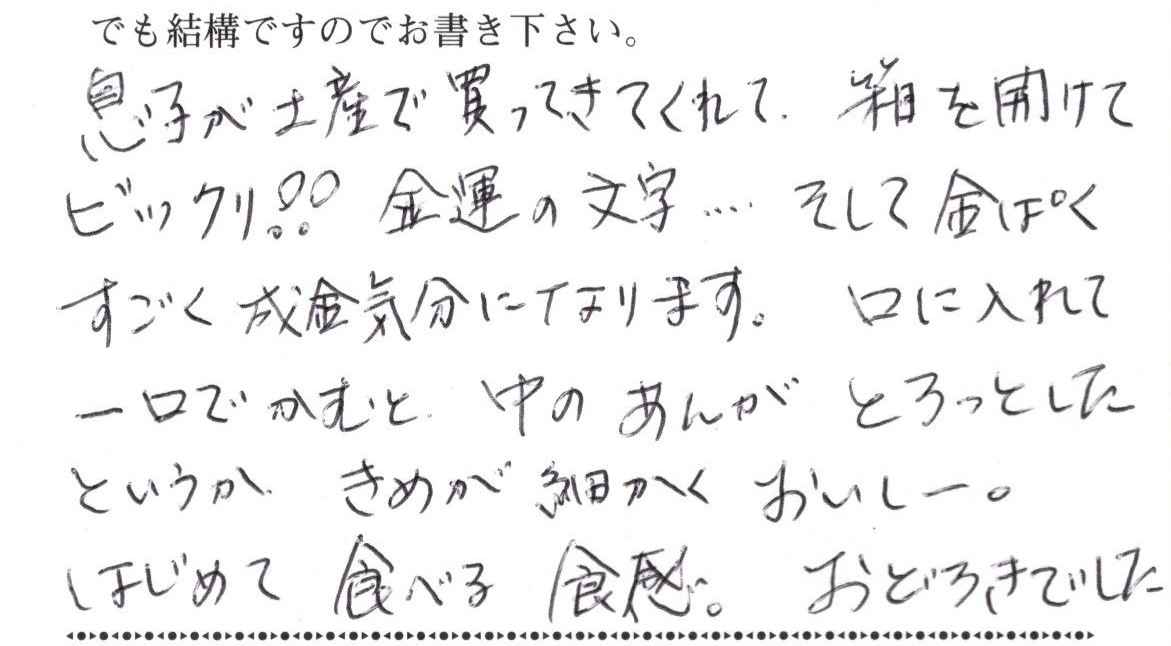 でも結構ですのでお書き下さい。
息子が土産で買ってきてくれて、箱を開けて
ビックリ!! 金運の文字…. そして金ぱく
すごく成金気分になります。 口に入れて
一口でかむと、中のあんが とろっとした
というか、きめが細かく おいしー。
はじめて食べる食感。 おどろきでした